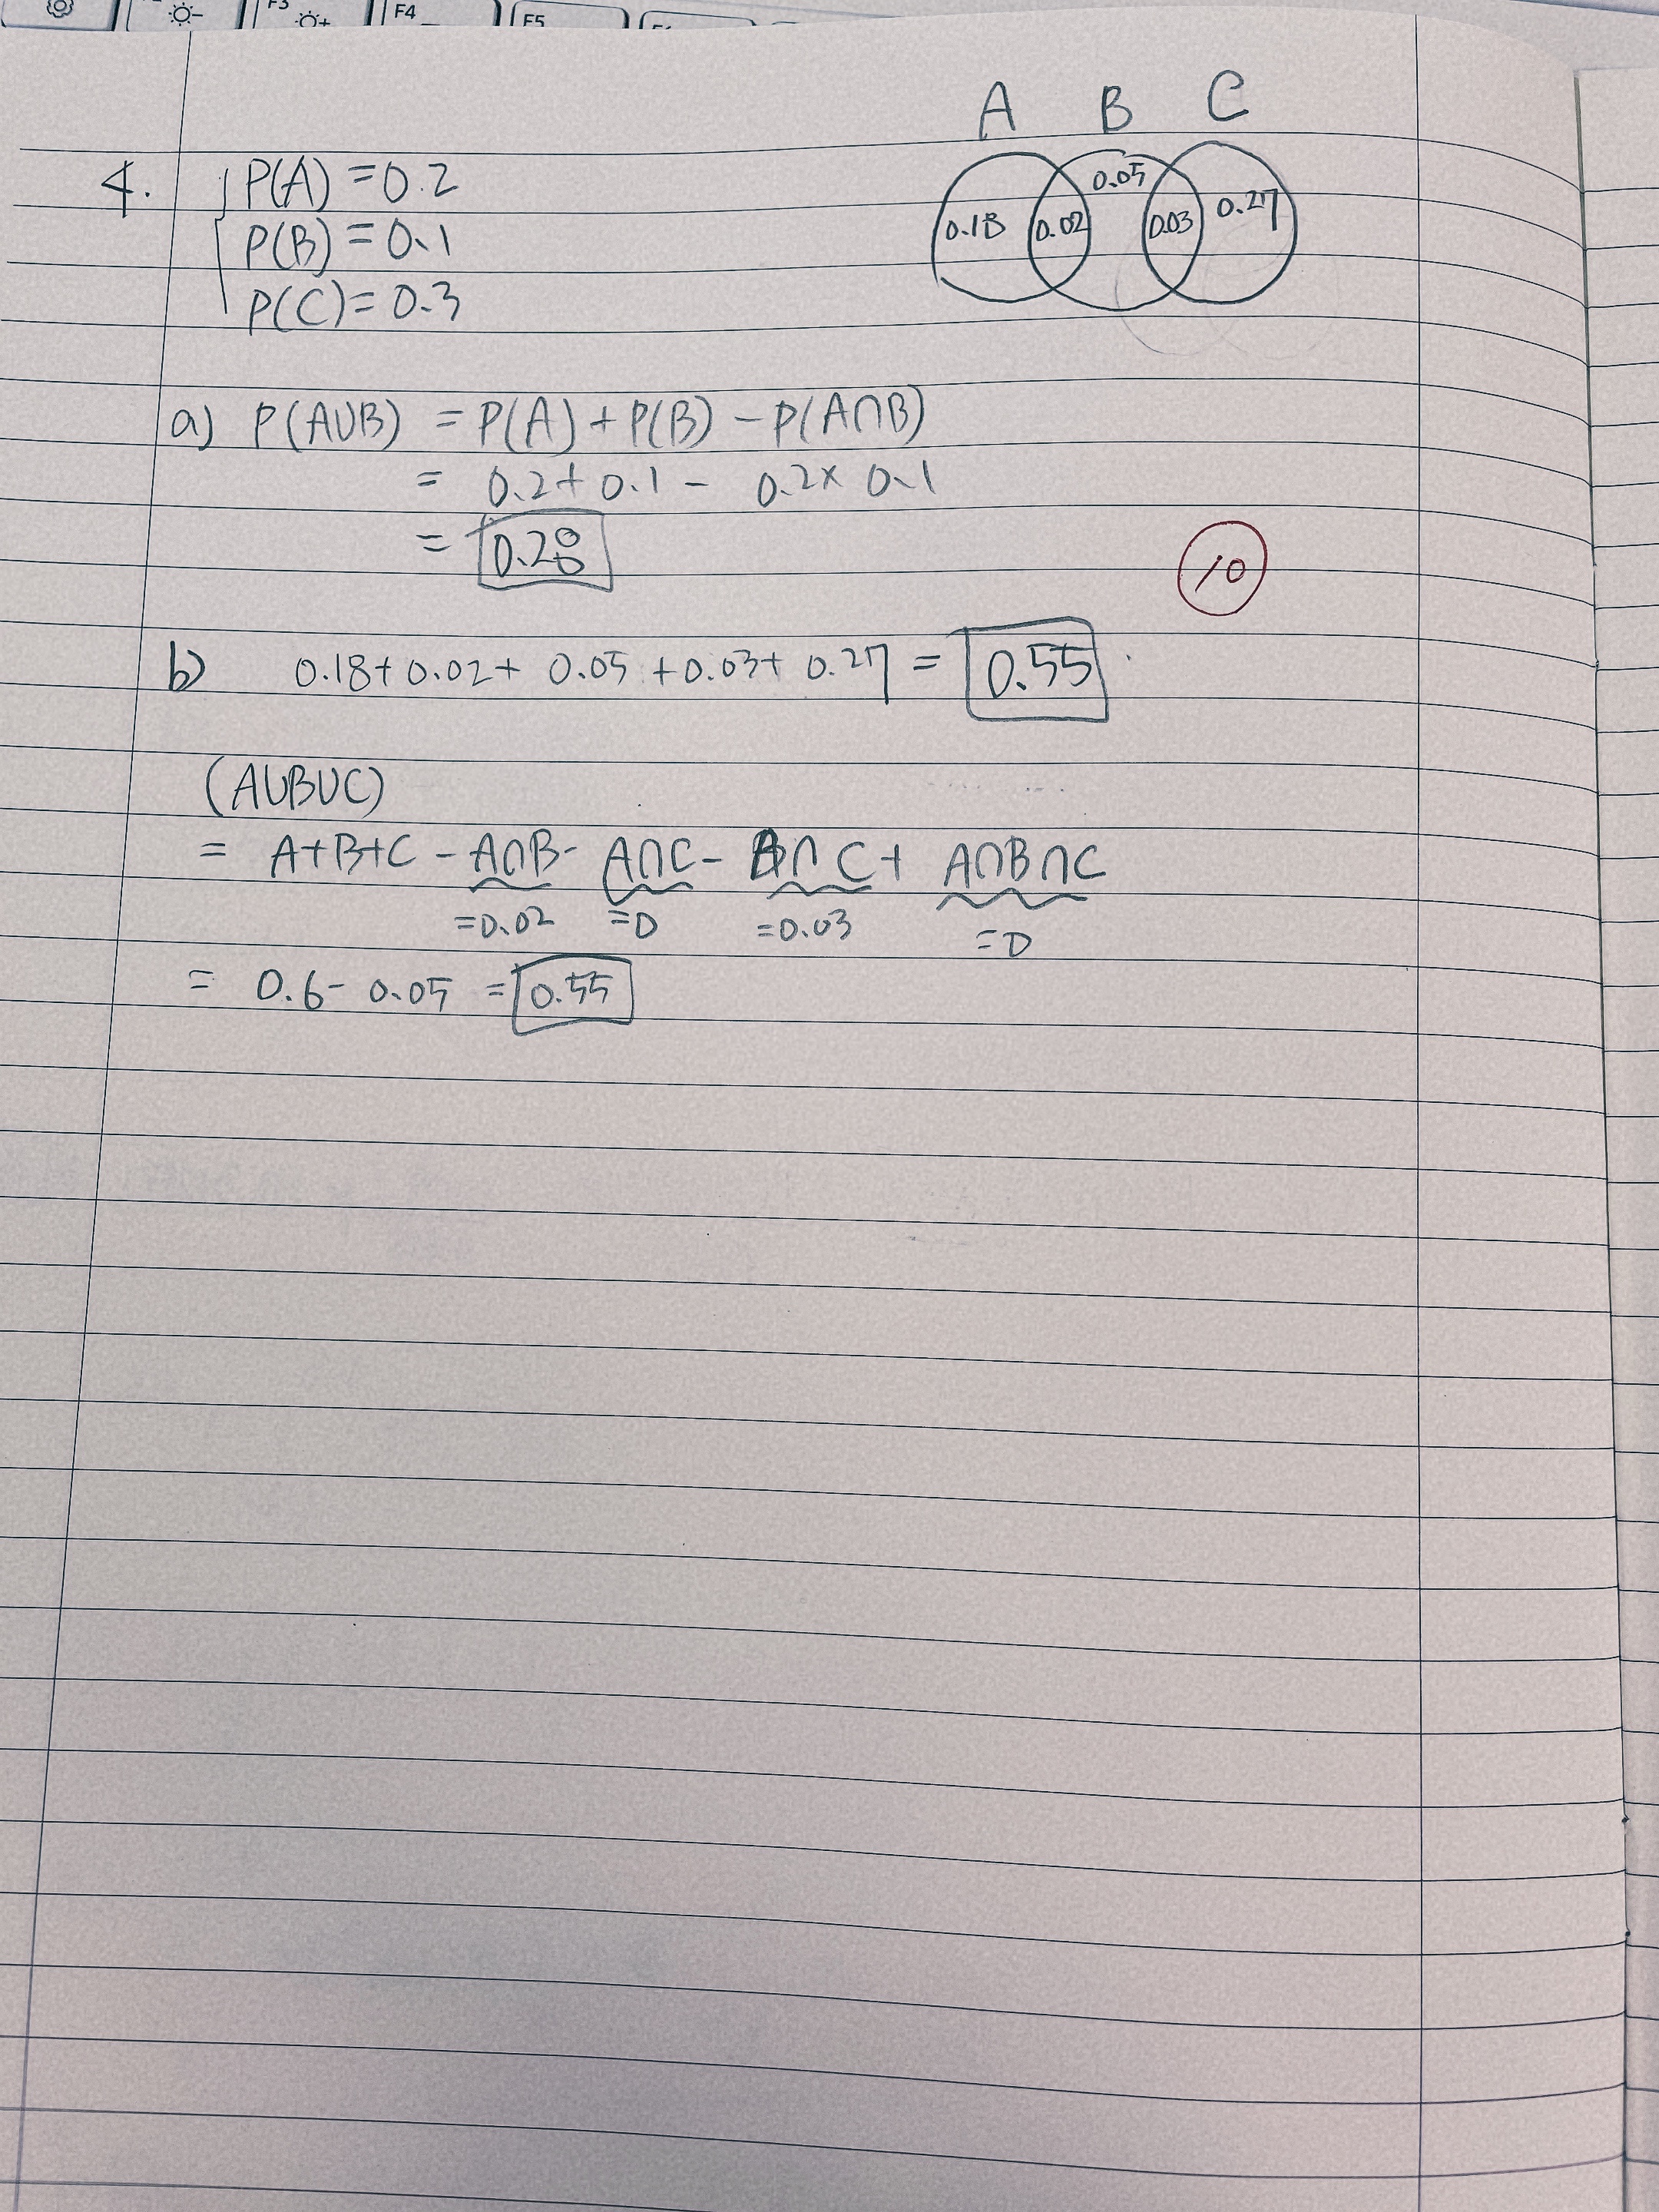 F3 F4 F5
A B C
4. P(A) = 0.2
P(B) = 0.1
P(C) = 0.3
0.18 0.02 0.05 0.03 0.27
a) P(A∪B) = P(A) + P(B) - P(A∩B)
= 0.2 + 0.1 - 0.2 × 0.1
= 0.28
10
b) 0.18 + 0.02 + 0.05 + 0.03 + 0.27 = 0.55
(A∪B∪C)
= A+B+C - A∩B - A∩C - B∩C + A∩B∩C
=0.02 =0 =0.03 =0
= 0.6 - 0.05 = 0.55